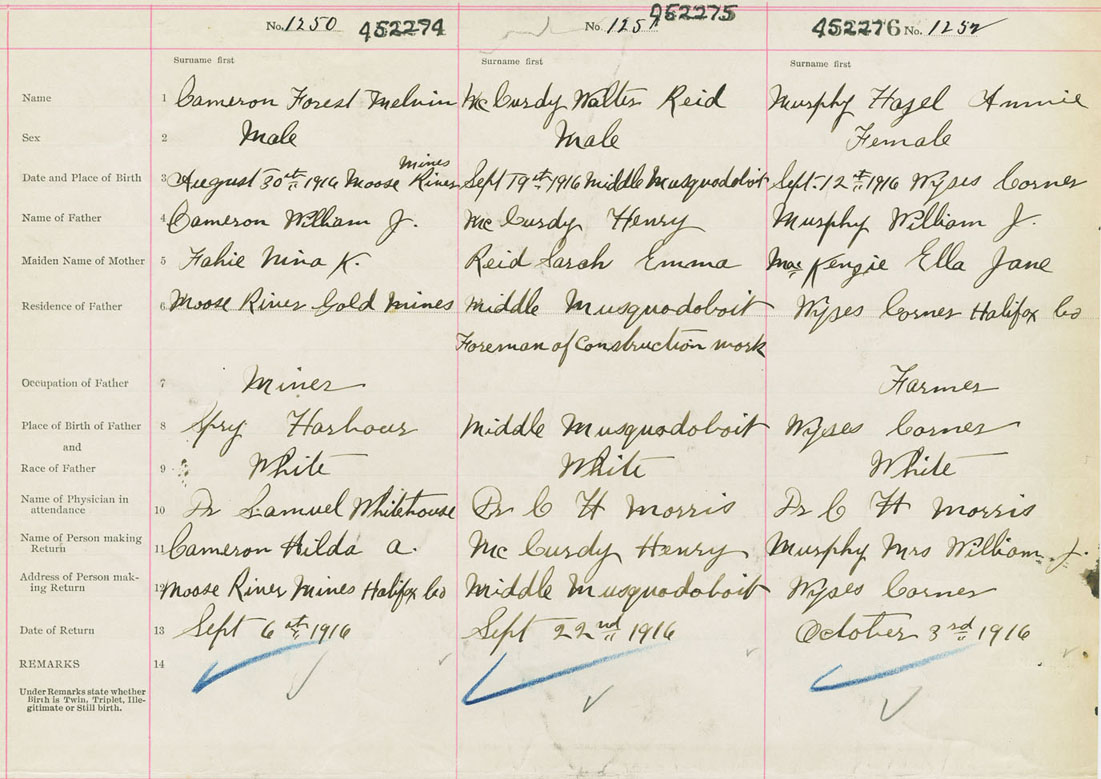 No. 1250 452274 No. 1251 452275 452276 No. 1252
Surname first Surname first Surname first
Name 1 Cameron Forest Melvin Mc Curdy Walter Reid Murphy Hazel Annie
Sex 2 Male Male Female
Mines
Date and Place of Birth 3 August 30th 1916 Moose River Sept 19th 1916 Middle Musquodoboit Sept. 12th 1916 Wyses Corner
Name of Father 4 Cameron William J. Mc Curdy Henry Murphy William J.
Maiden Name of Mother 5 Fahie Nina K. Reid Sarah Emma Mac Kenzie Ella Jane
Residence of Father 6 Moose River Gold Mines Middle Musquodoboit Wyses Corner Halifax Co
Foreman of Construction work
Occupation of Father 7 Miner Farmer
Place of Birth of Father 8 Spry Harbour Middle Musquodoboit Wyses Corner
and
Race of Father 9 White White White
Name of Physician in
attendance 10 Dr Samuel Whitehouse Dr C H Morris Dr C H Morris
Name of Person making
Return 11 Cameron Hilda A. Mc Curdy Henry Murphy Mrs William J.
Address of Person mak-
ing Return 12 Moose River Mines Halifax Co Middle Musquodoboit Wyses Corner
Date of Return 13 Sept 6th 1916 Sept 22nd 1916 October 3rd 1916
REMARKS 14
Under Remarks state whether
Birth is Twin, Triplet, Ille-
gitimate or Still birth.